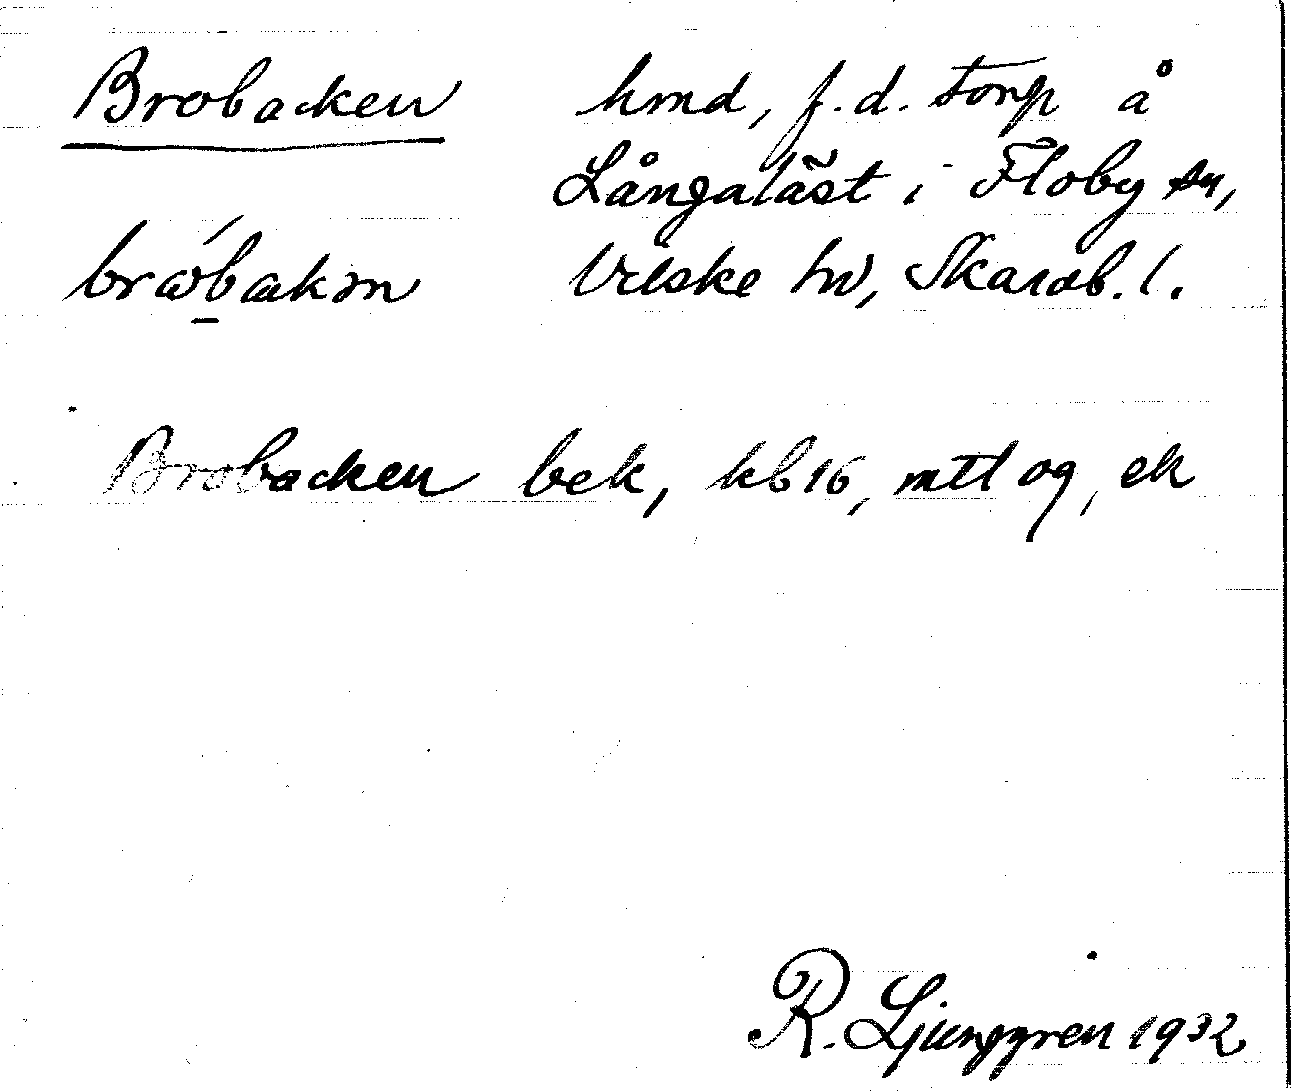 Brobacken hmd, f.d. torp å
Långaläst i Floby sn,
Vilske hd, Skarab. l.
Brobacken bek, kb 16, mtl og, ek
R. Ljunggren 1932